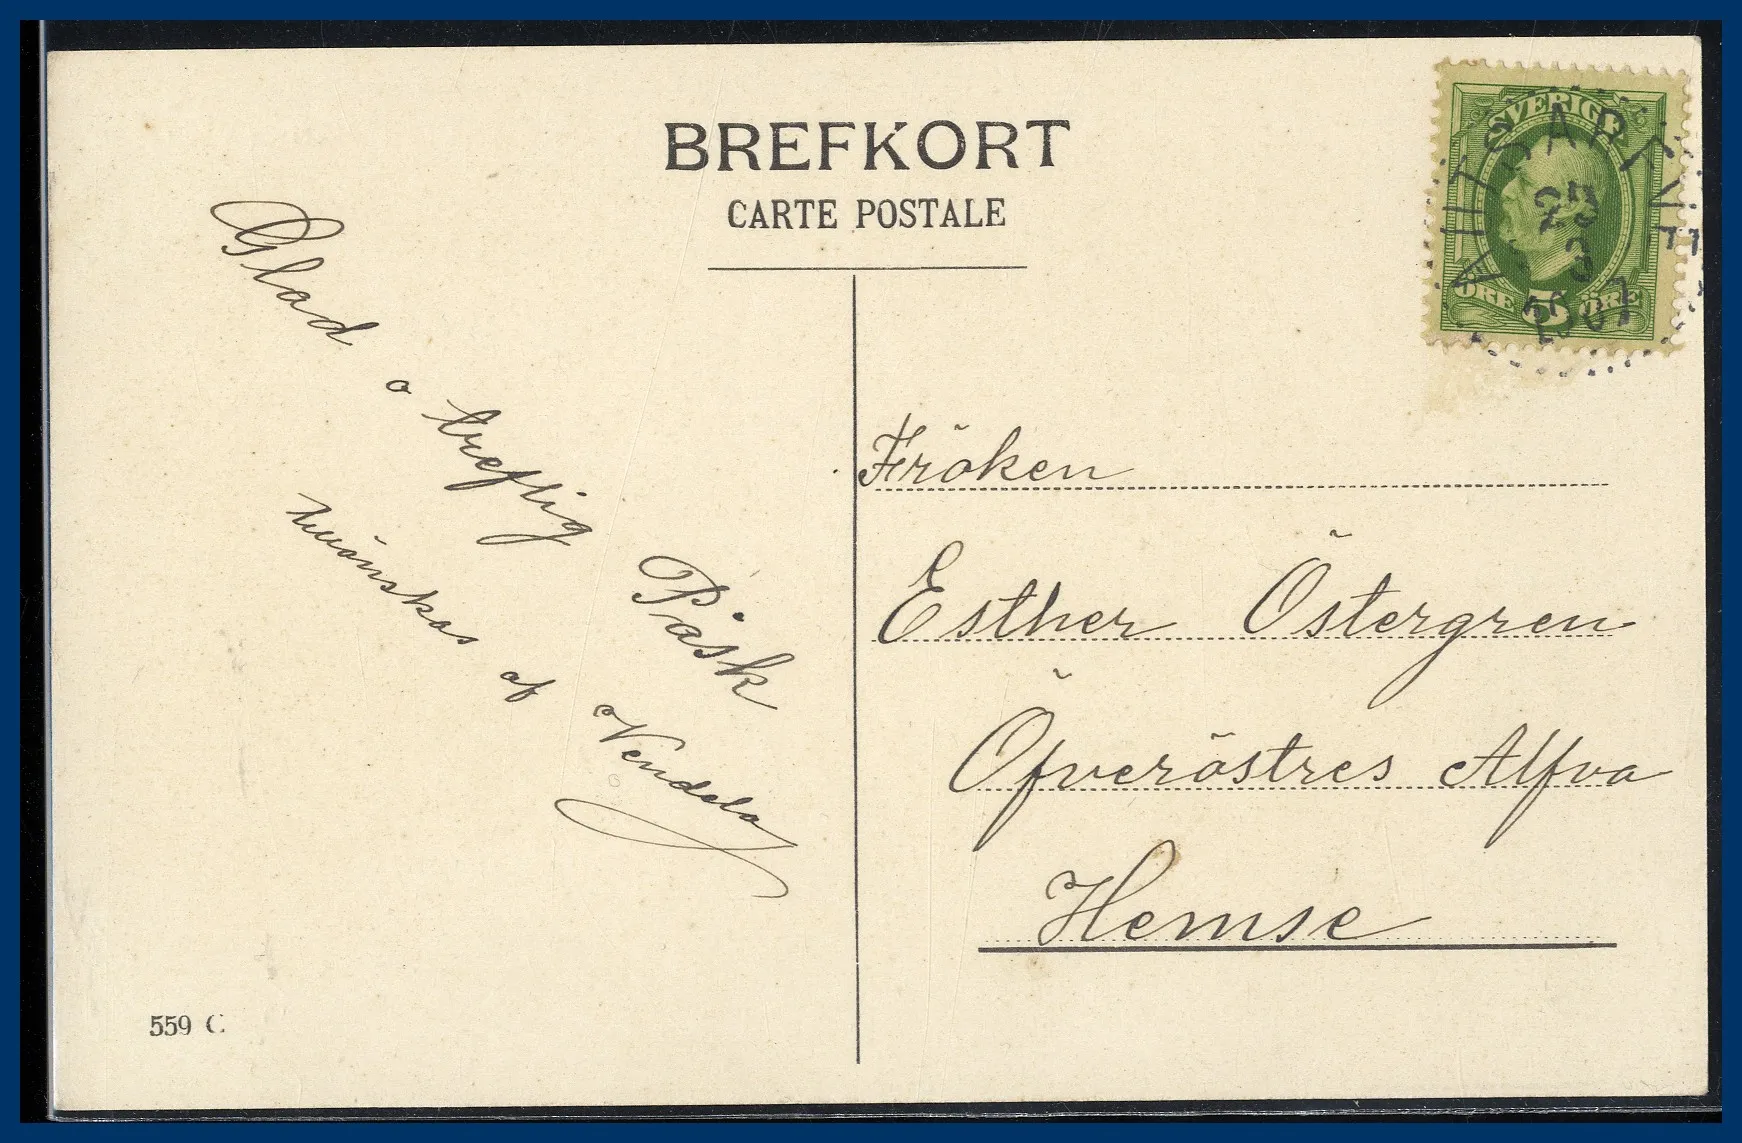 BREFKORT
CARTE POSTALE
SVERIGE
ÖRE 5 ÖRE
23
3
1907
Glad o treflig Påsk
tillönskas af Vendela
Fröken
Esther Östergren
Öfveröstres Alfva
Hemse
559 C.